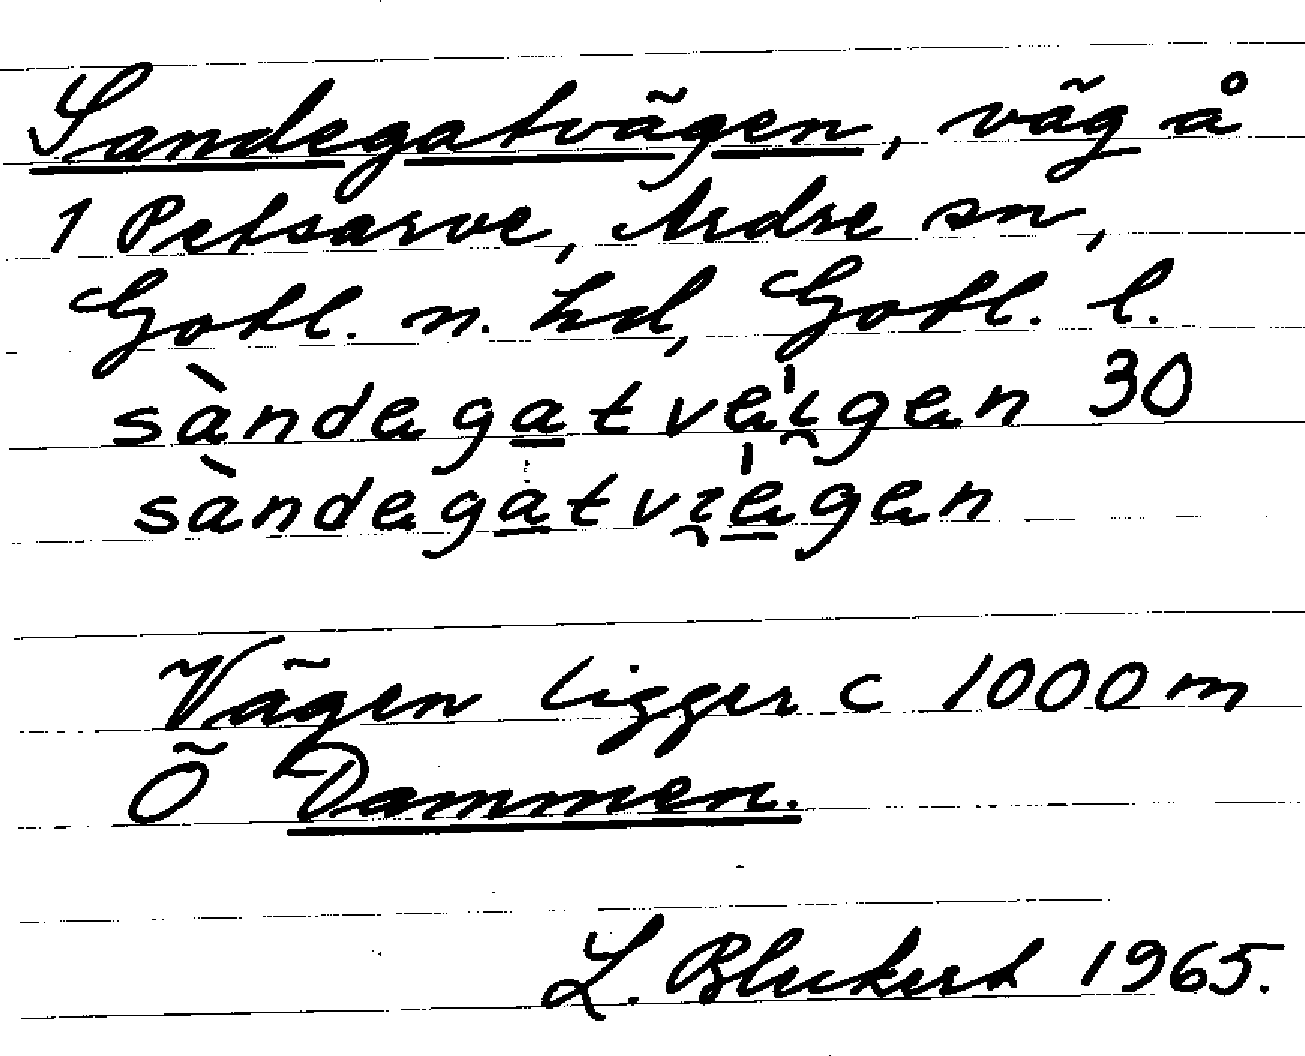 Sandegatvägen, väg å
1 Petsarve, Ardre sn,
Gotl. n. hd, Gotl. l.
sàndegatveigen 30
sàndegatviegen
Vägen ligger c 1000 m
Ö Dammen.
L. Blukert 1965.